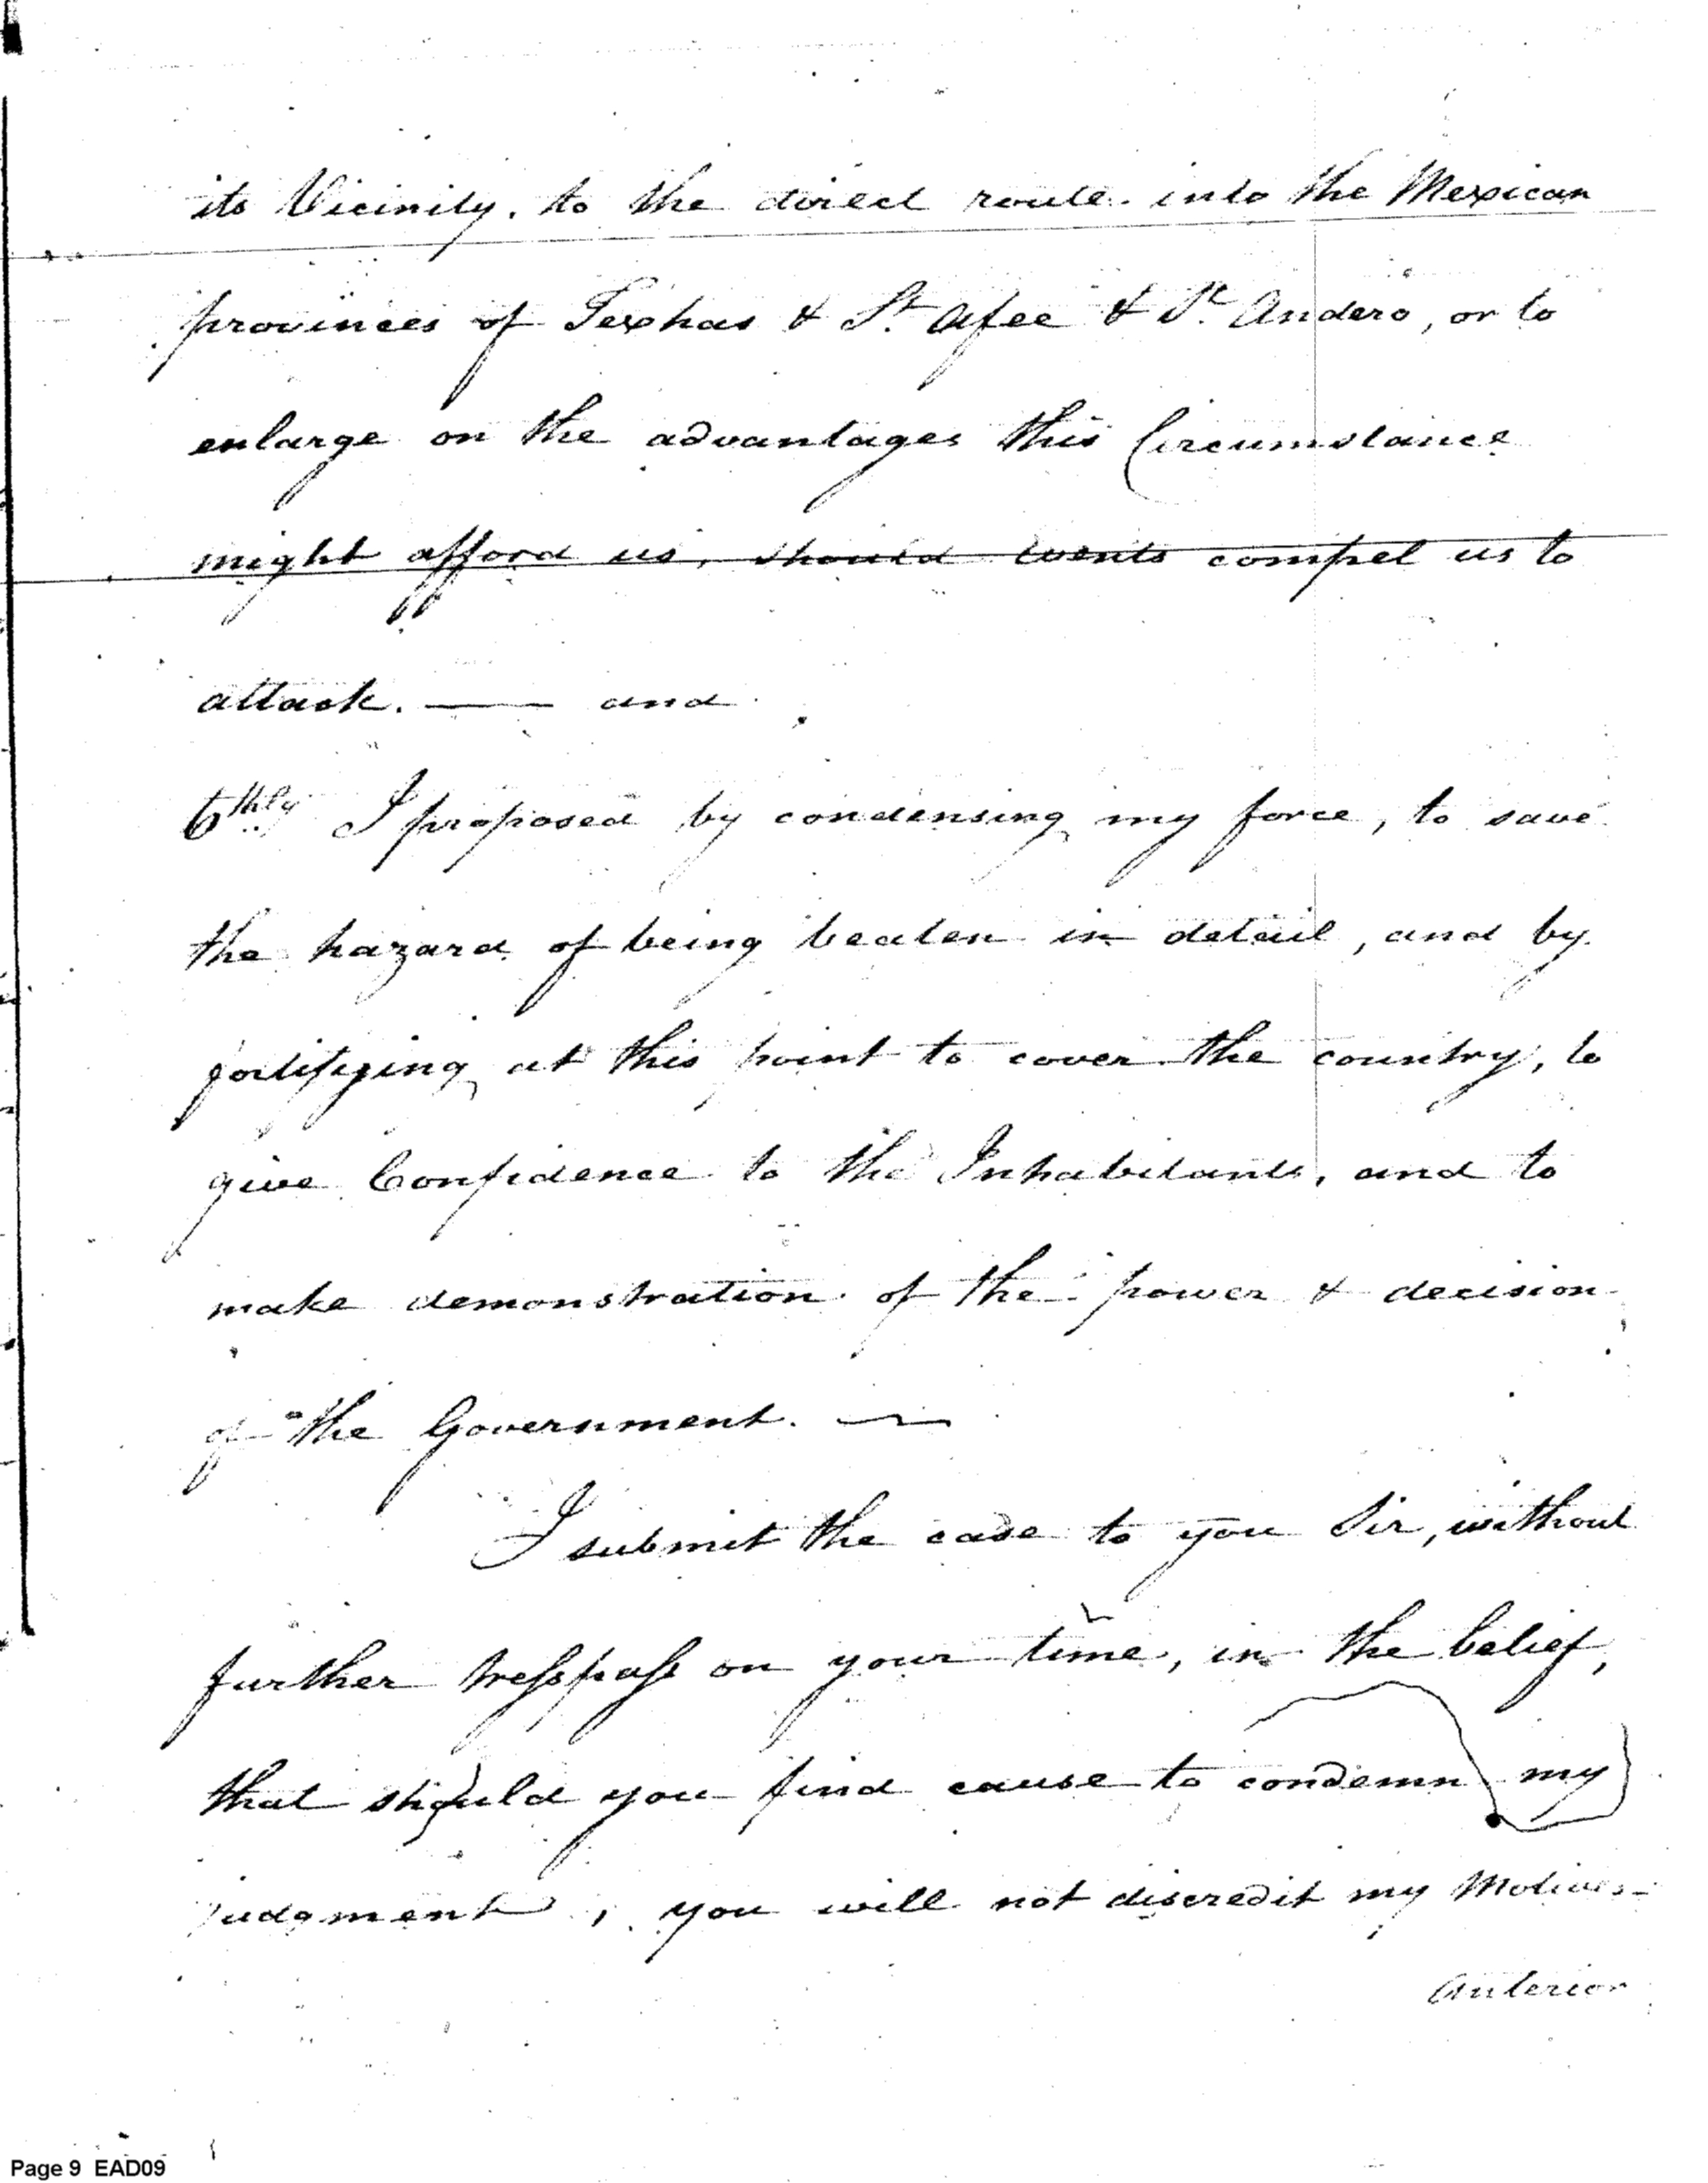 its Vicinity, to the direct route into the Mexican
provinces of Texhas & St. Afee & St. Andero, or to
enlarge on the advantages this Circumstance
might afford us, should events compel us to
attack. —— and
6thly I proposed by condensing my force, to save
the hazard of being beaten in detail, and by
fortifying at this point to cover the country, to
give Confidence to the Inhabitants, and to
make demonstration of the power & decision
of the Government. —
I submit the case to you Sir, without
further tresspass on your time, in the belief,
that should you find cause to condemn my
judgment, you will not discredit my Motives
Anterior
Page 9 EAD09